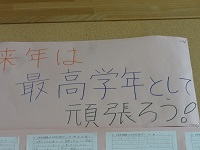 来年は
最高学年として
頑張ろう!